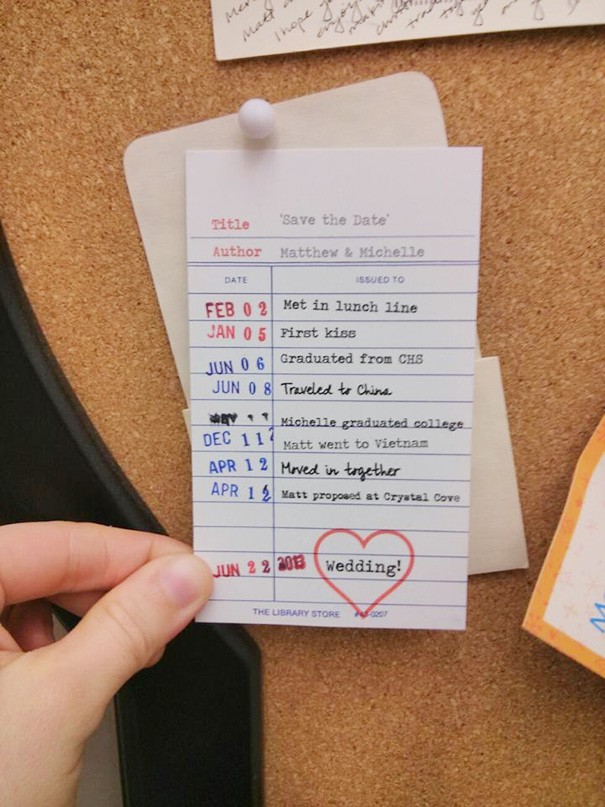 I hope you
Title 'Save the Date'
Author Matthew & Michelle
DATE ISSUED TO
FEB 0 2 Met in lunch line
JAN 0 5 First kiss
JUN 0 6 Graduated from CHS
JUN 0 8 Traveled to China
Michelle graduated college
DEC 1 1 Matt went to Vietnam
APR 1 2 Moved in together
APR 1 2 Matt proposed at Crystal Cove
JUN 2 2 2013 Wedding!
THE LIBRARY STORE #43-0207